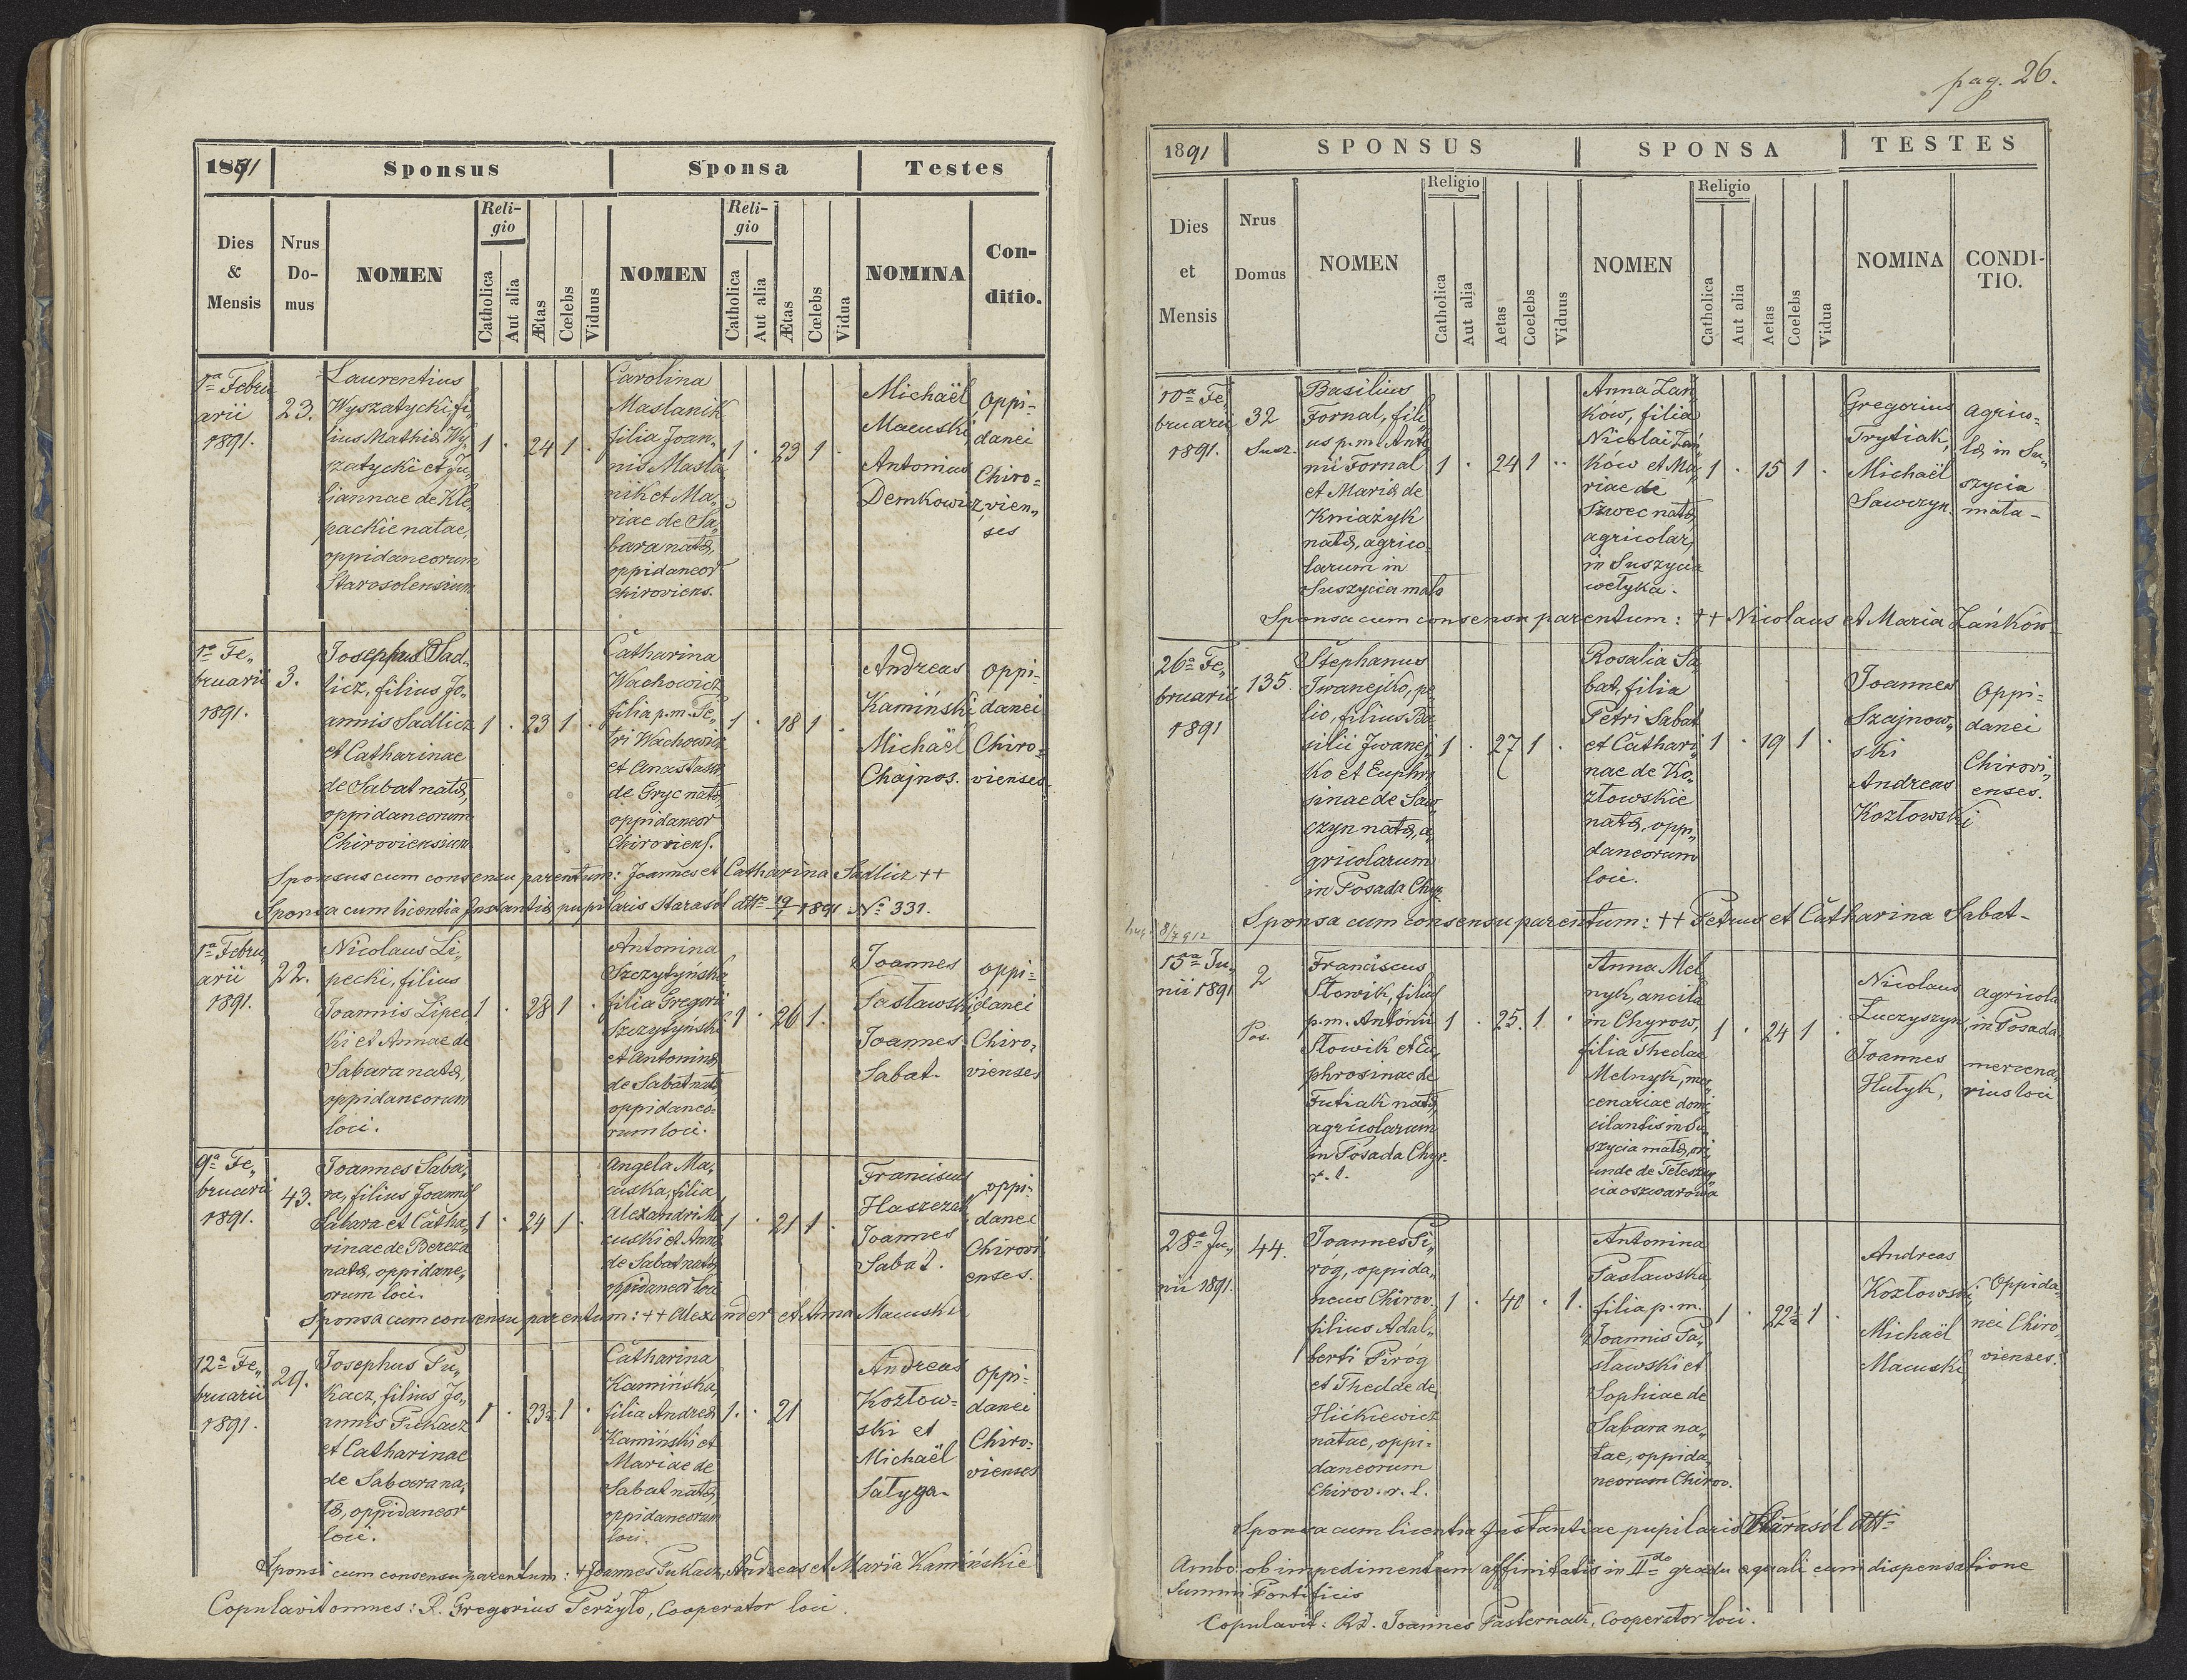 1891
Sponsus
Sponsa
Testes
Dies
&
Mensis
Nrus
Do-
mus
NOMEN
Reli-
gio
Catholica
Aut alia
Ætas
Cœlebs
Viduus
NOMEN
Reli-
gio
Catholica
Aut alia
Ætas
Cœlebs
Vidua
NOMINA
Con-
ditio.
1ª Febru
arii
1891.
23.
Laurentius
Wyszatycki, fi„
lius Mathiæ Wy„
szatycki et Ju„
liannae de Kle„
packie natae,
oppidaneorum
Starosolensium
1 . 24 1 .
Carolina
Maslanik
filia Joan„
nis Masla„
nik et Ma„
riae de Sa„
bara natæ,
oppidaneor
Chiroviens.
1 . 23 1 .
Michaël
Macuski
Antonius
Demkowicz
oppi=
danei
Chiro=
vien„
ses
1ª Fe„
bruarii
1891.
3.
Josephus Sad„
licz, filius Jo„
annis Sadlicz
et Catharinae
de Sabat natæ,
oppidaneorum
Chiroviensium
1 . 23 1 .
Catharina
Wachowicz
filia p.m. Pe„
tri Wachowicz
et Anastasiæ
de Gryc natæ,
oppidaneor
Chiroviens.
1 . 18 1 .
Andreas
Kamiński
Michaël
Chajnos.
oppi=
danei
Chiro=
vienses
Sponsus cum consensu parentum: Joannes et Catharina Sadlicz ++
Sponsa cum licentia Instantiæ pupilaris Starasól dtto 19/1 1891 Nº 331.
1ª Febru„
arii
1891.
22.
Nicolaus Li„
pecki, filius
Joannis Lipec
ki et Annae de
Sabara natæ,
oppidaneorum
loci.
1 . 28 1 .
Antonina
Szczytyńska
filia Gregorii
Szczytyński
et Antoninæ
de Sabat natæ
oppidaneo=
rum loci.
1 . 26 1.
Joannes
Pasławski
Joannes
Sabat.
oppi=
danei
Chiro=
vienses
9ª Fe„
bruarii
1891.
43.
Joannes Saba„
ra, filius Joannis
Sabara et Catha„
rinae de Bereza
natæ, oppidane„
orum loci.
1 . 24 1 .
Angela Ma„
cuska, filia
Alexandri Ma
cuski et Annæ
de Sabat natæ
oppidaneor loci
1 . 21 1 .
Franciscus
Haszczak
Joannes
Sabat.
oppi=
danei
Chirovi
enses.
Sponsa cum consensu parentum: ++ Alexander et Anna Macuski
12ª Fe„
bruarii
1891.
29.
Josephus Pu„
kacz, filius Jo„
annis Pukacz
et Catharinae
de Sabara na„
tæ, oppidaneor
loci.
1 . 23½ 1 .
Catharina
Kamińska,
filia Andreæ
Kamiński et
Mariae de
Sabat natæ,
oppidaneorum
loci.
1. . 21
Andreas
Kozłow=
ski et
Michaël
Satyga.
oppi=
danei
Chiro=
vienses
Sponsi cum consensu parentum: + Joannes Pukacz, Andreas et Maria Kamińskie
Copulavit omnes: R. Gregorius Perżyło, Cooperator loci.
pag. 26.
1891
SPONSUS
SPONSA
TESTES
Dies
et
Mensis
Nrus
Domus
NOMEN
Religio
Catholica
Aut alia
Aetas
Coelebs
Viduus
NOMEN
Religio
Catholica
Aut alia
Aetas
Coelebs
Vidua
NOMINA
CONDI-
TIO.
10ª Fe„
bruarii
1891.
32
Susz.
Basilius
Fornal, fili„
us p.m. Anto
nii Fornal
et Mariæ de
Kniażyk
natæ, agrico„
larum in
Suszycia mała
1 . 24 1 ..
Anna Zań
ków, filia
Nicolai Zań
ków et Ma„
riae de
Szwec natæ
agricolar,
in Suszycia
wełyka.
1 . 15 1 .
Gregorius
Trytiak,
Michaël
Sawczyn.
agrico=
læ in Su„
szycia
mała -
Sponsa cum consensu parentum: ++ Nicolaus et Maria Zańków
26ª Fe„
bruarii
1891
135.
Stephanus
Iwanejko, pe
lio, filius Ba
silii Iwanej
ko et Euphro
sinae de Saw
czyn natæ, a„
gricolarum
in Posada Chyr.
1 . 27 1 .
Rosalia Sa„
bat, filia
Petri Sabat
et Cathari„
nae de Ko„
złowskie
natæ, oppi„
daneorum
loci.
1 . 19 1 .
Joannes
Szajnow„
ski
Andreas
Kozłowski
oppi=
danei
Chirovi„
enses.
Sponsa cum consensu parentum: ++ Petrus et Catharina Sabat-
8/7 912
15ª Ju„
nii 1891
2
Pos.
Franciscus
Słowik, filius
p.m. Antonii
Słowik et Eu„
phrosinae de
Futiak natæ,
agricolarum
in Posada Chyr.
r. l.
1 . 25. 1 .
Anna Mel„
nyk, ancilla
in Chyrow,
filia Theclae
Melnyk, mer„
cenariae domi„
cilantis in Su„
szycia mała, ori„
unde de
1 . 24 1 .
Nicolaus
Łuczyszyn,
Joannes
Hułyk,
agricola
in Posada
mercena„
rius loci
28ª Ju„
nii 1891.
44.
Joannes Pi„
róg, oppida„
neus Chirov.
filius Adal„
berti Piróg
et Theclae de
Hićkiewicz
natae, oppi=
daneorum
Chirov. r. l.
1 . 40 . 1.
Antonina
Pasławska,
filia p.m.
Joannis Pa„
sławski et
Sophiae de
Sabara na„
tae, oppida„
neorum Chirov.
1 . 22½ 1 .
Andreas
Kozłowski,
Michaël
Macuski
Oppida„
nei Chiro„
vienses.
Sponsa cum licentia Instantiae pupilaris Starasól dtto
Ambo: ob impedimentum affinitatis in IIdo gradu æquali cum dispensatione
Summi Pontificis
Copulavit: Rd. Joannes Pasternak, Cooperator loci.